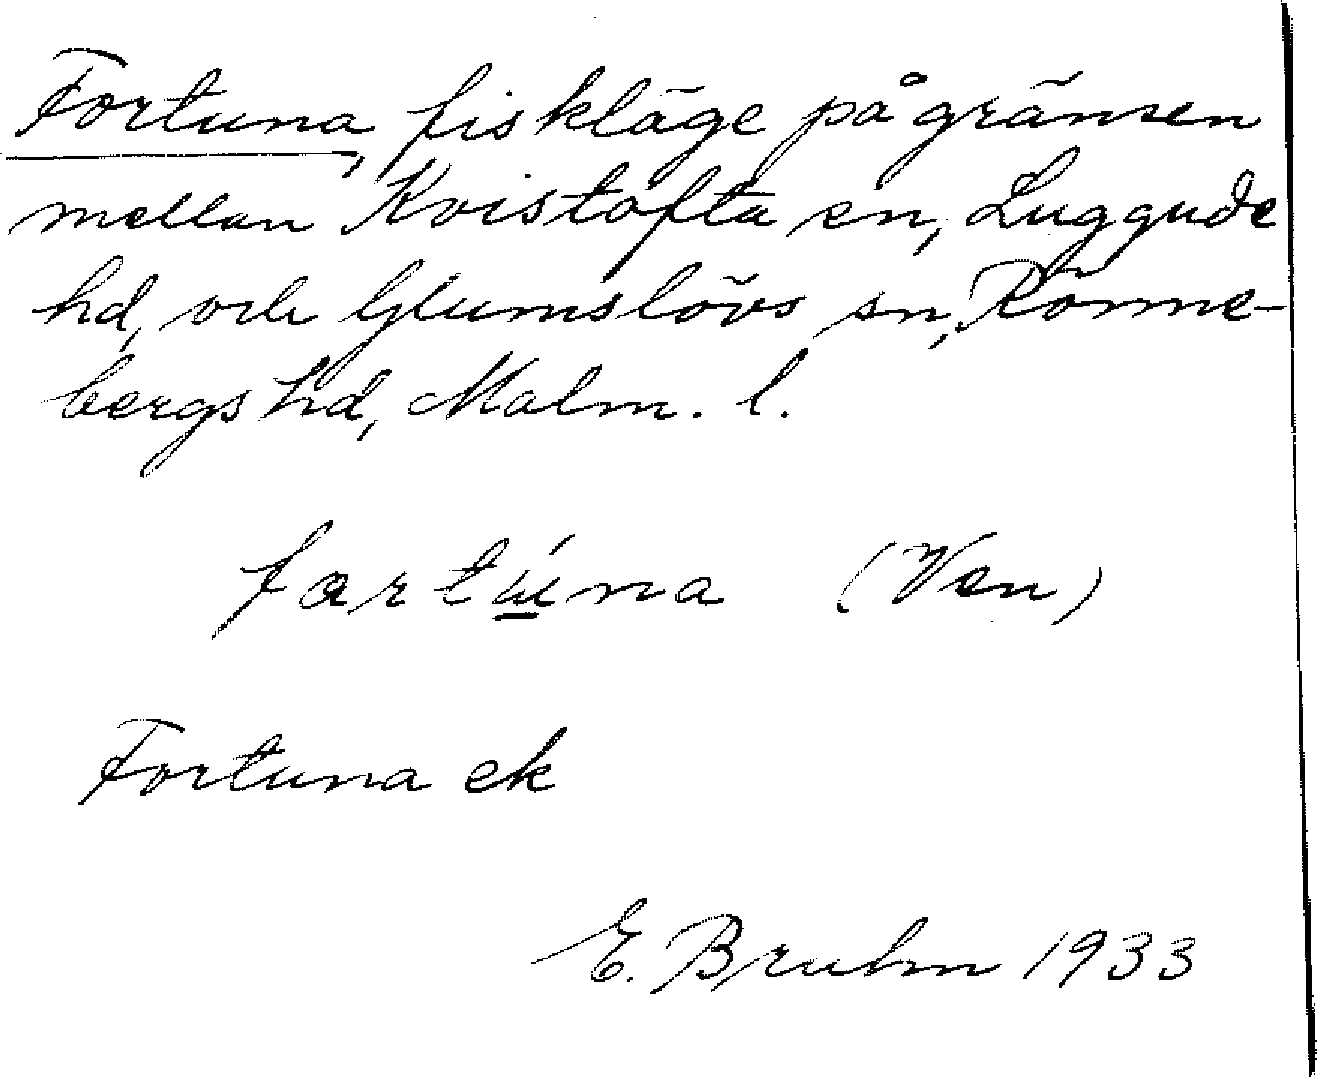 Fortuna, fiskläge på gränsen
mellan Kvistofta sn, Luggude
hd, och Glumslövs sn, Rönne-
bergs hd, Malm. l.
fɑrtɯ́na (Ven)
Fortuna ek
E. Bruhn 1933